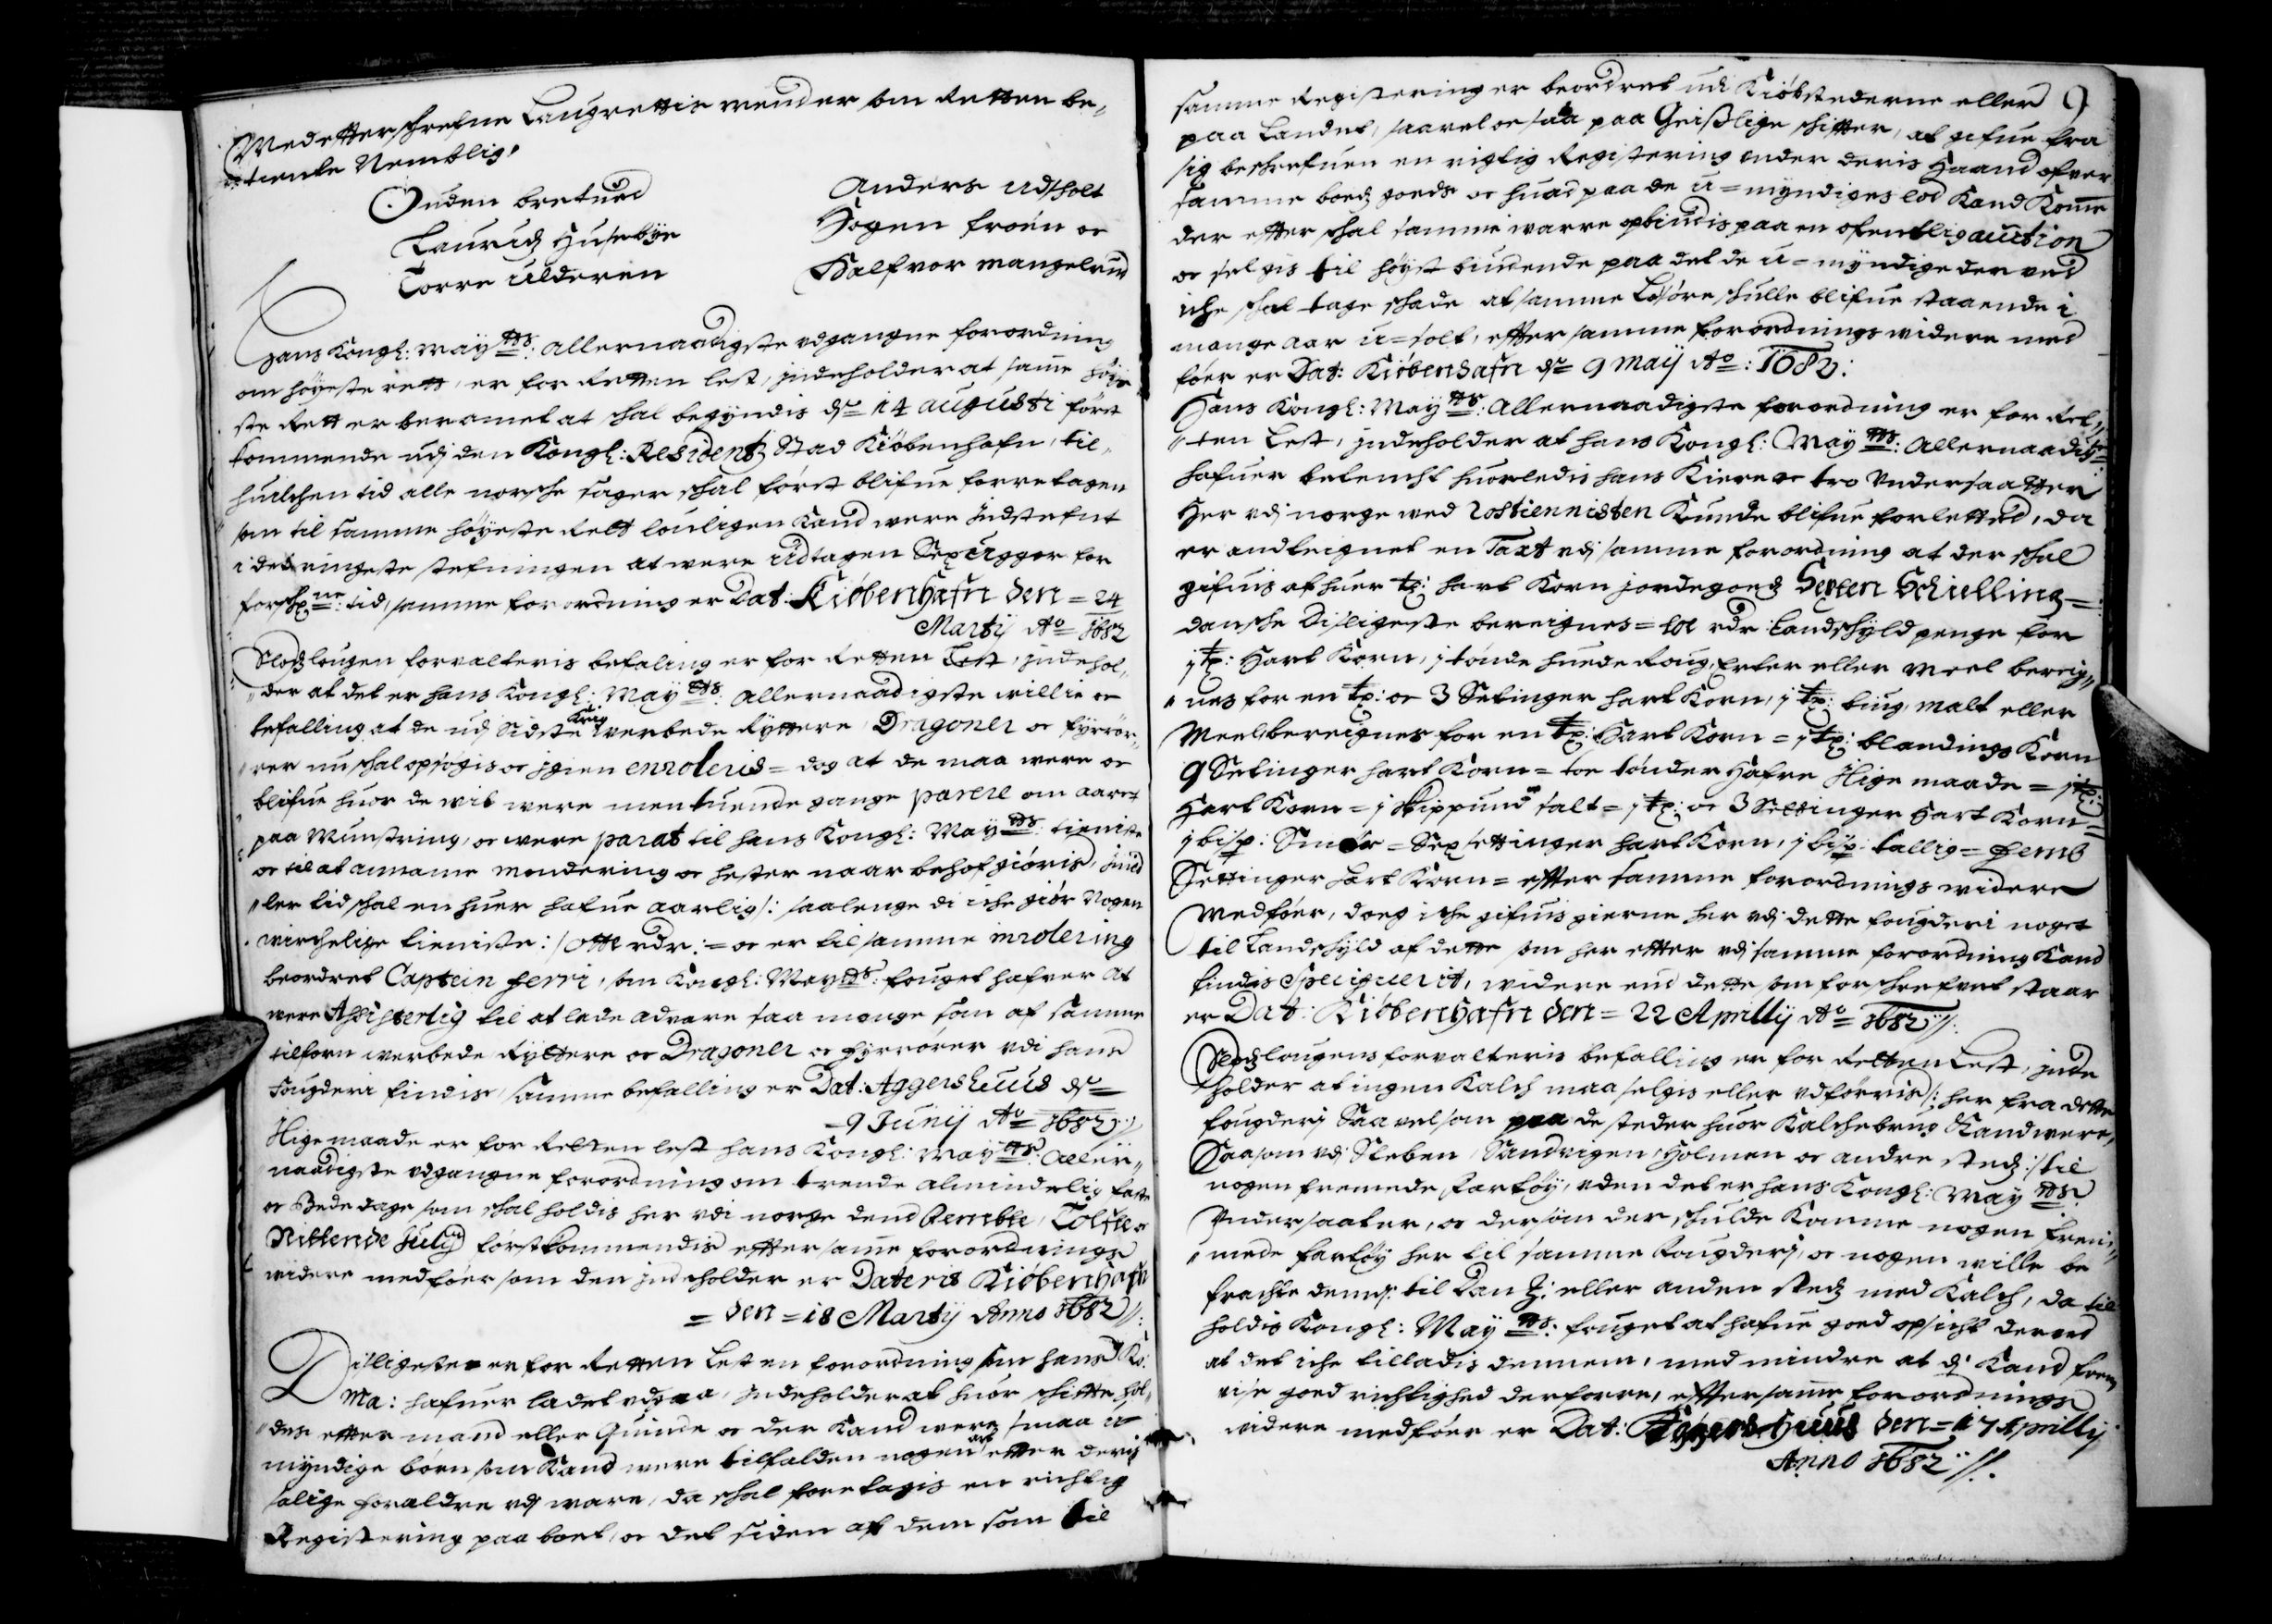 Med effterschrefne Laugrettis mender som Retten be„
„tiente Nemblig,
Ouden bretued
Anders udsholt
Lauridz Husebye
Hogen froen oc
Torre ulderen
Halfvor mangelrud
Hans Kongl: May tts: allernaadigste vdgangne forordning
om höyeste rett, er for Retten lest, Indeholder at samme höye
ste Rett er beramet at schal begyndis dn 14 augusti först
kommende udj den Kongl: Residentz Stad Kiöbenhafn, til„
huilchen tid alle norsche sager schal först blifue forretagen
som til samme höyeste Rett louligen Kand were Indstefnt
i det ringeste stefningen at were udtagen Sex ugger for
forschr ne: tid, samme forordning er Dat: Kiöbenhafn den = 24
Martij Ao = 1682
Slodzlougen forvalteris befaling er for Retten Lest, indehol„
„der at det er hans Kongl: May tts: allernaadigste willie oc
befalling at de udj Sidste Krig werbede Ryttere Dragoner oc fyrrör„
„rer nu schal opsögis oc igien enroleris = dog at de maa were oc
blifue huor de wil were men tuende gange parere om aaret
paa Munstring, oc were parat til hans Kongl: May tts: tieniste
oc til at anname mondering oc hester naar behof giöris, imid
„ler tid schal en huer hafue aarlig /: saalenge di iche giör Nogen
wirchelige tieniste :/ otte rdr := oc er til samme inrolering
beordret Captein ferri, som Kongl: May tts: fouget hafver at
were Assisterlig til at lade advare saa mange som af samme
tilforn werbede Ryttere oc Dragoner oc fyrrörer vdi hans
fougderi findis, samme befalling er Dat: Aggershuus dn
= 9 Junij Ao = 1682 //
Ilige maade er for Retten lest hans Kongl: May tts: aller„
naadigste vdgangne forordning om trende almindelig faste
oc Bede dage som schal holdis her vdi norge dend fembte, Tolfte oc
Nittende Julij förstkommendis effter samme forordnings
widere medföer som den indeholder er Dateris Kiöbenhafn
= den = 18 Martij Anno 1682 //:
Dißligeste er for Retten Lest en forordning som hans Ko:
Ma: hafuer ladet vdgaa, indeholder at huor schiffte hol„
„des effter mand eller Quinde oc der Kand were smaa u
myndige börn som Kand were tilfalden nogen arf effter deris
salige foraldre vdj ware, da schal foretagis en richtig
Registering paa boet, oc det siden af dem som til
9
samme Registering er beordret udj Kiöbstederne eller
paa Landet, saavel oc saa paa Geißlige schiffter, at gifue fra
sig beschrefuen en rigtig Registering under deris Haand ofver
samme boedz goeds oc huad paa de u=myndiges lod Kand Komme
der effter schal samme warre opbiudis paa en ofentlig auction
oc selgis til höyst biudende paa det de u=myndige der ved
iche schal tage schade at samme Lösöre schulle blifue staaende i
mange aar u=solt, effter samme forordnings widere med
föer er Dat: Kiöbenhafn dn 9 Maij Ao: 1682:
Hans Kongl: May tts: Allernaadigste forordning er for Ret„
„ten Lest, indeholder at hans Kongl: May tts: Allernaadigste
hafuer betencht huorledis hans Kiere oc tro Vndersaatter
Her vdj norge med Rostiennisten Kunde blifue forletted, da
er andteignet en Taxt vdj samme forordning at der schal
gifuis af huer tr: hart Korn jordegoedz Sexten Schielling =
dansche dißligeste bereignes = tol rdr: Landschyld penge for
1 tr: Hart Korn, 1 tönde huede Roug, Erter eller Meel bereig„
„nes for en tr: oc 3 Setinger hart Korn, 1 tr: biug, malt eller
Meel bereignes for en tr: Hart Korn = 1 tr: blandings Korn
9 Setinger hart Korn = toe tönder Hafre Ilige maade = 1 tr:
Hart Korn = 1 Skippund salt = 1 tr: oc 3 Settinger Hart Korn =
1 bisp: Smör = Sex settinger hart Korn, 1 bisp: tallig = femb
Settinger Hart Korn = effter samme forordnings widere
Medföer, doeg iche gifuis gierne her vdj dette fougderi noget
til Landschyld af dette som her effter vdj samme forordning Kand
findis Specificerit, widere end dette som forschrefvet staar
er Dat: Kiöbenhafn den = 22 Aprilly Ao = 1682 //:
Slodzlougens forvalteris befalling er for Retten Lest, inde
holder at ingen Kalch maa selgis eller vdförris /: her fra dette
fougderj Saa vel som paa de steder huor Kalchebrug Kand were,
Saasom vdj Sleben, Sandvigen, Holmen oc andre stedz :/ til
nogen fremede Fartöy, vden det er hans Kongl: May tts:
Vndersaater, oc dersom der schulde Komme nogen frem„
„mede fartöy her til samme fougderj, oc nogen wille be
frachte dennem til Dan Z: eller anden stedz med Kalch, da til
holdis Kongl: May tts: fouget at hafue goed opsicht der ved
at det iche tilladis dennem, med mindre at dj Kand frem
vise goed richtighed derforre, effter samme forordnings
widere medföer er Dat: Aggershuus den = 17 Aprilly
Anno 1682 //.